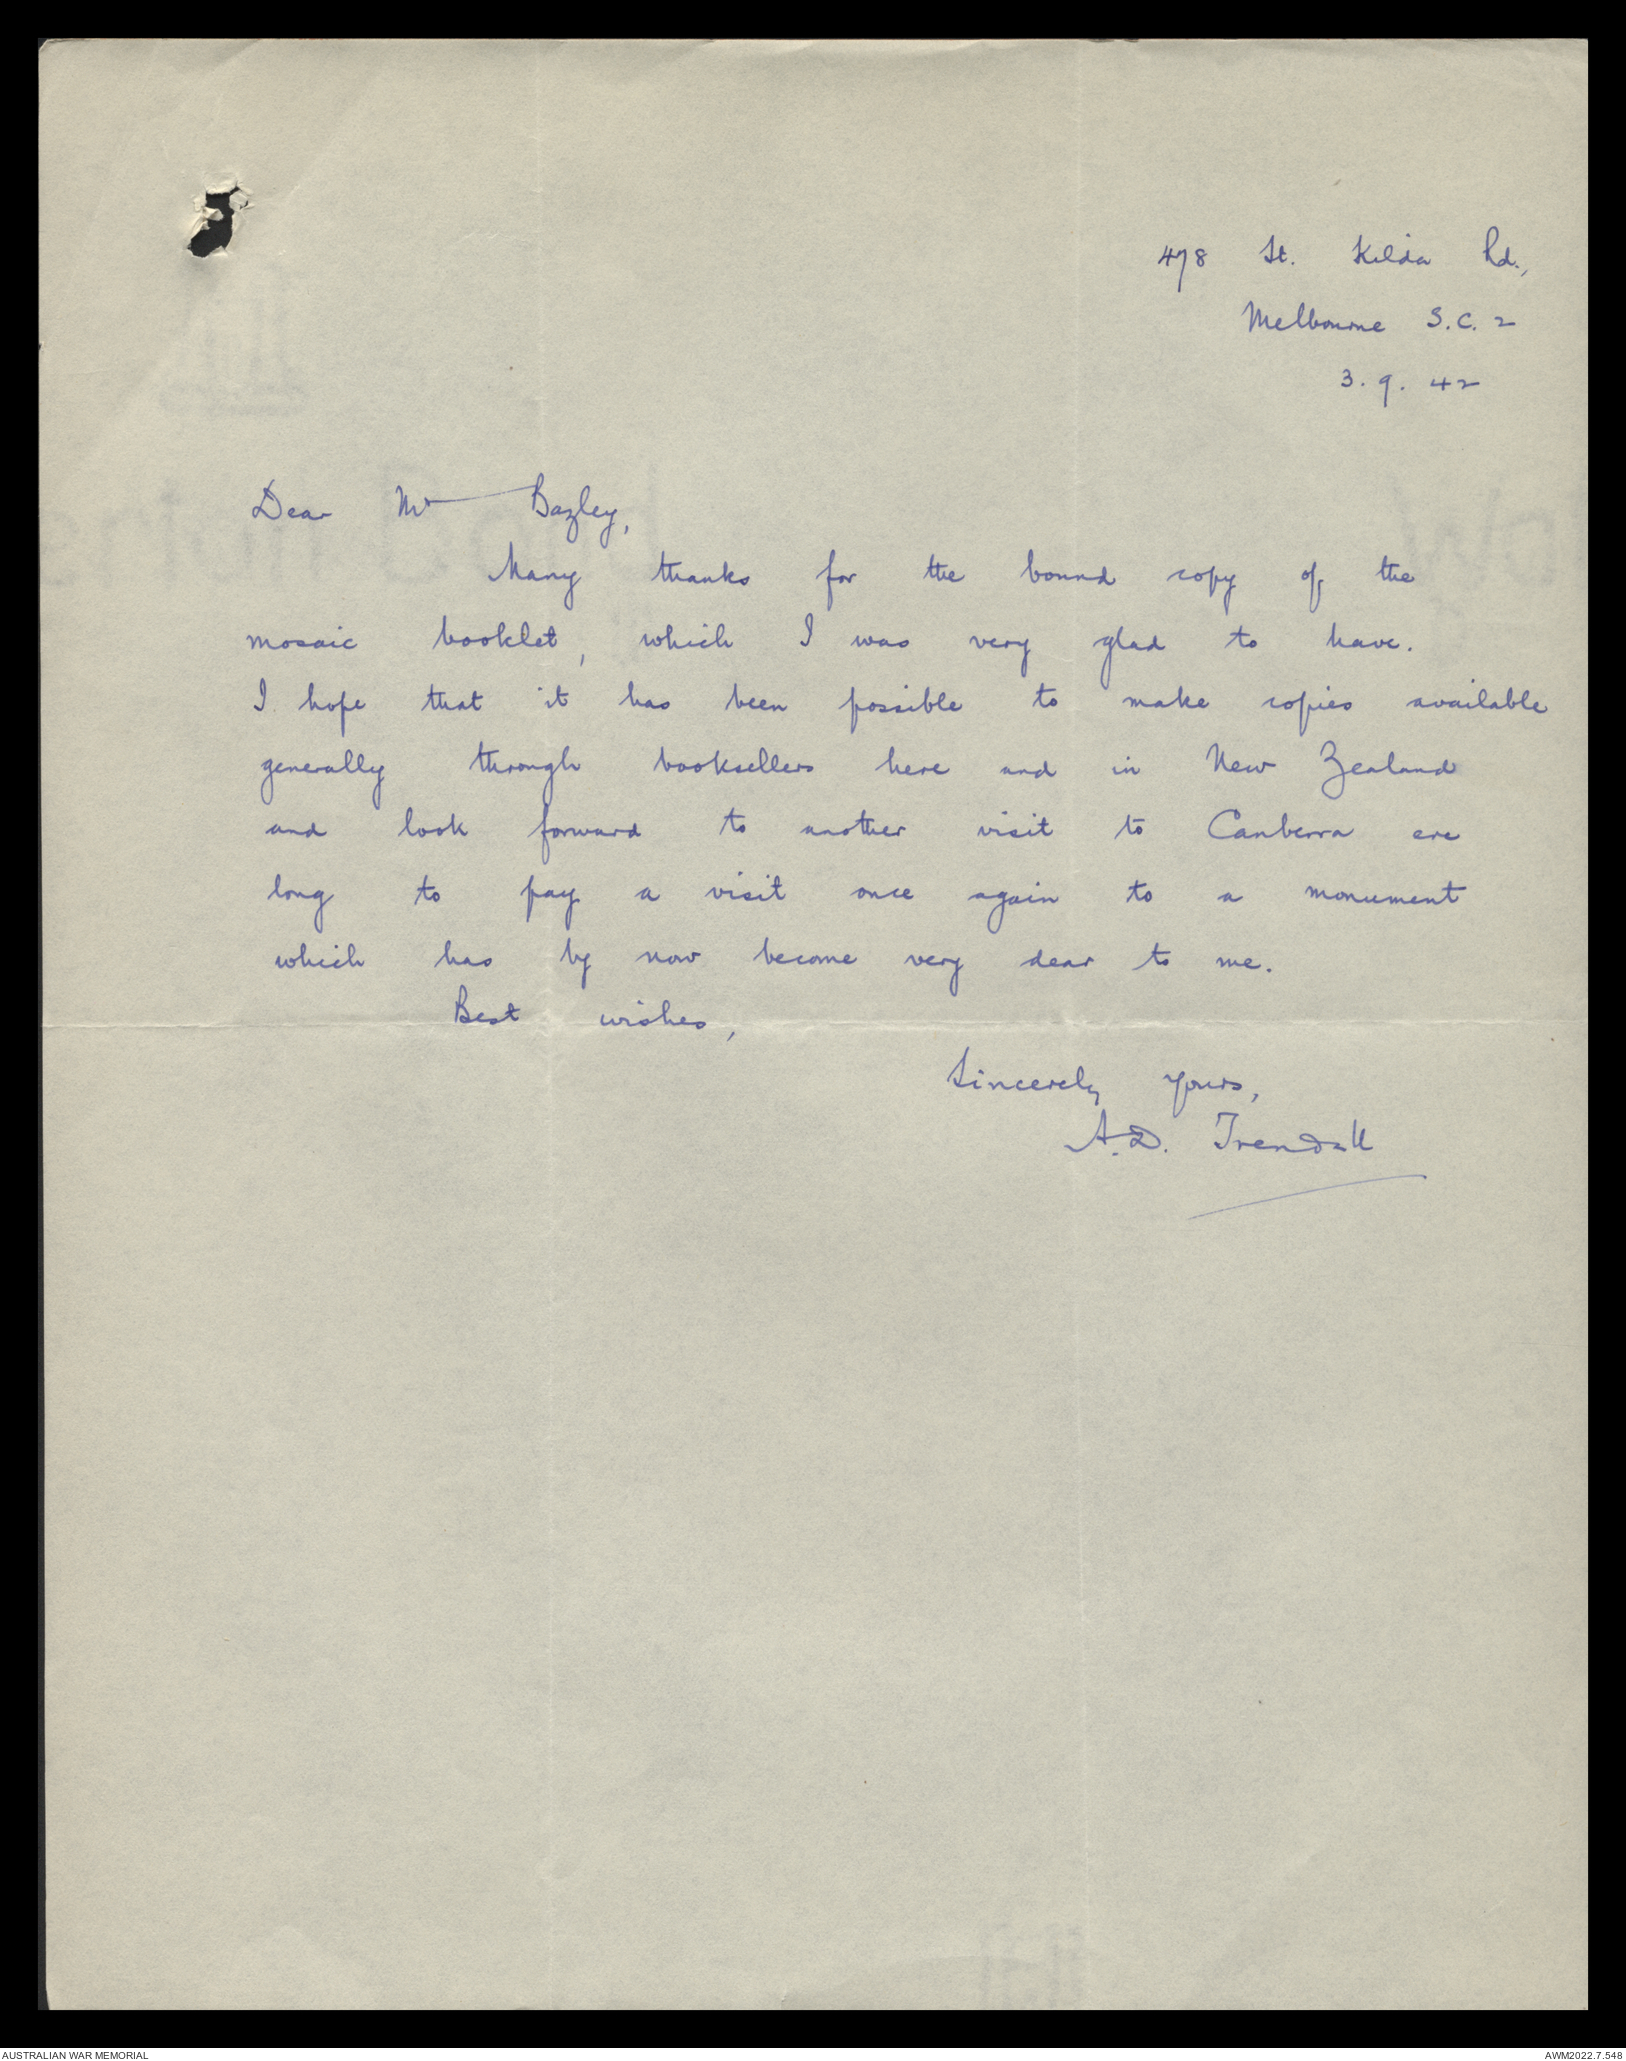 478 St. Kilda Rd.,
Melbourne S.C.2
3.9.42
Dear Mr Bazley,
Many thanks for the bound copy of the
mosaic booklet, which I was very glad to have.
I hope that it has been possible to make copies available
generally through booksellers here and in New Zealand
and look forward to another visit to Canberra ere
long to pay a visit once again to a monument
which has by now become very dear to me.
Best wishes,
Sincerely yours,
A.D. Trendall
AUSTRALIAN WAR MEMORIAL
AWM2022.7.548